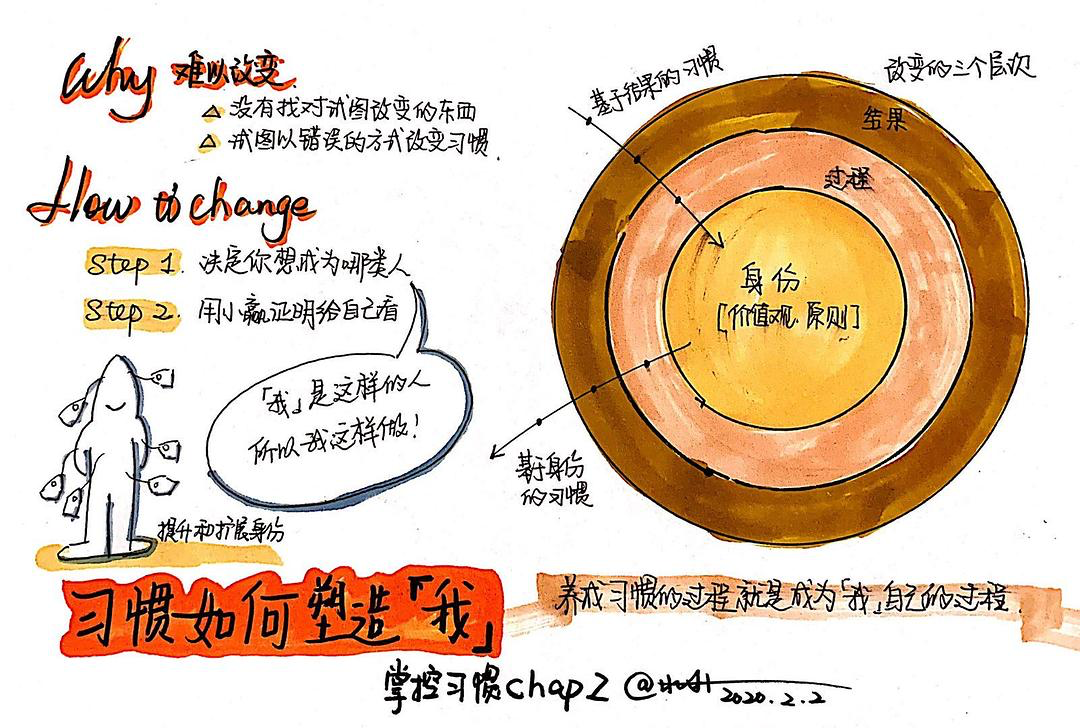 Why 难以改变.
没有找对试图改变的东西
试图以错误的方式改变习惯.
How to change
Step 1. 决定你想成为哪类人
Step 2. 用小赢证明给自己看
「我」是这样的人
所以我这样做!
提升和扩展身份
改变的三个层次
基于结果的习惯
结果
过程
身份
[价值观.原则]
基于身份
的习惯
习惯如何塑造「我」
养成习惯的过程就是成为「我」自己的过程.
掌控习惯chap2 @
2020.2.2